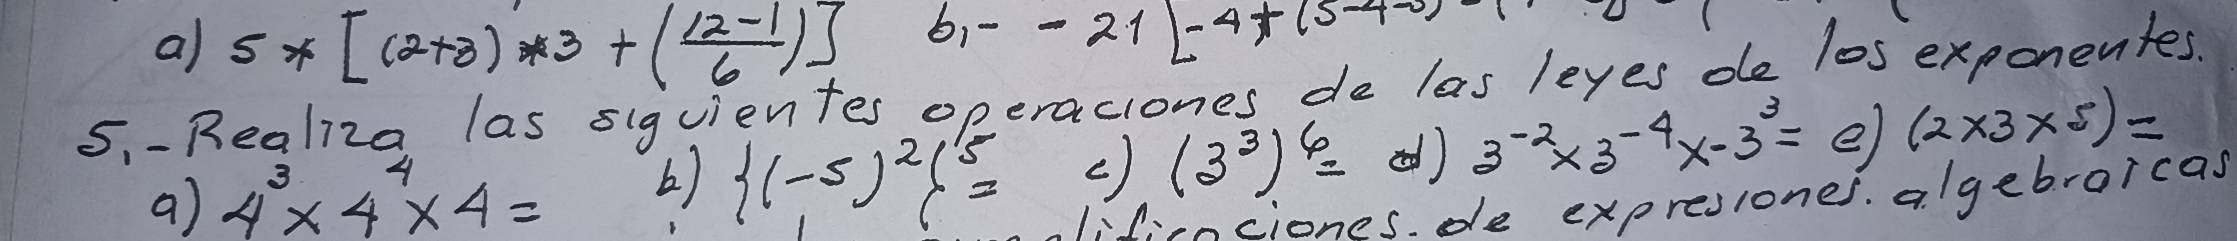 a) 5 * [(2+3) * 3 + (12-1/6)] b,- - 21 [-4+(5-4-
5,- Realiza las siguientes operaciones de las leyes de los exponentes.
a) 4³ x 4⁴ x 4 = b) {(-5)²{⁵ = c) (3³)⁶ = d) 3⁻² x 3⁻⁴ x -3³ = e) (2x3x5) =
de expresiones. algebraicas